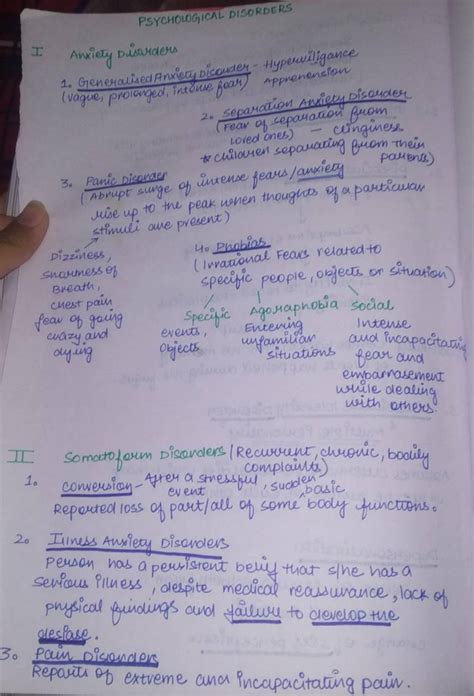 PSYCHOLOGICAL DISORDERS
I Anxiety Disorders
1. Generalised Anxiety Disorder - Hypervigilance
(vague, prolonged, intense fear) Apprehension
2. Separation Anxiety Disorder
(Fear of separation from
loved ones) - clinginess
* children separating from their
parents)
3. Panic Disorder
(Abrupt surge of intense fears/anxiety
rise up to the peak when thoughts of a particular
stimuli are present)
Dizziness,
shortness of
Breath,
chest pain
fear of going
crazy and
dying
4. Phobias
(Irrational Fears related to
specific people, objects or situation)
Specific Agoraphobia Social
events,
Objects
Entering
unfamiliar
situations
Intense
and incapacitating
fear and
embarrasement
while dealing
with others.
II Somatoform Disorders (Recurrent, chronic, bodily
complaints)
1. conversion - After a stressful, sudden
event basic
Reported loss of part/all of some body functions.
2. Illness Anxiety Disorders
Person has a persistent belief that s/he has a
serious illness, despite medical reassurance, lack of
physical findings and failure to develop the
diesease.
3. Pain Disorders
Reports of extreme and incapacitating pain.